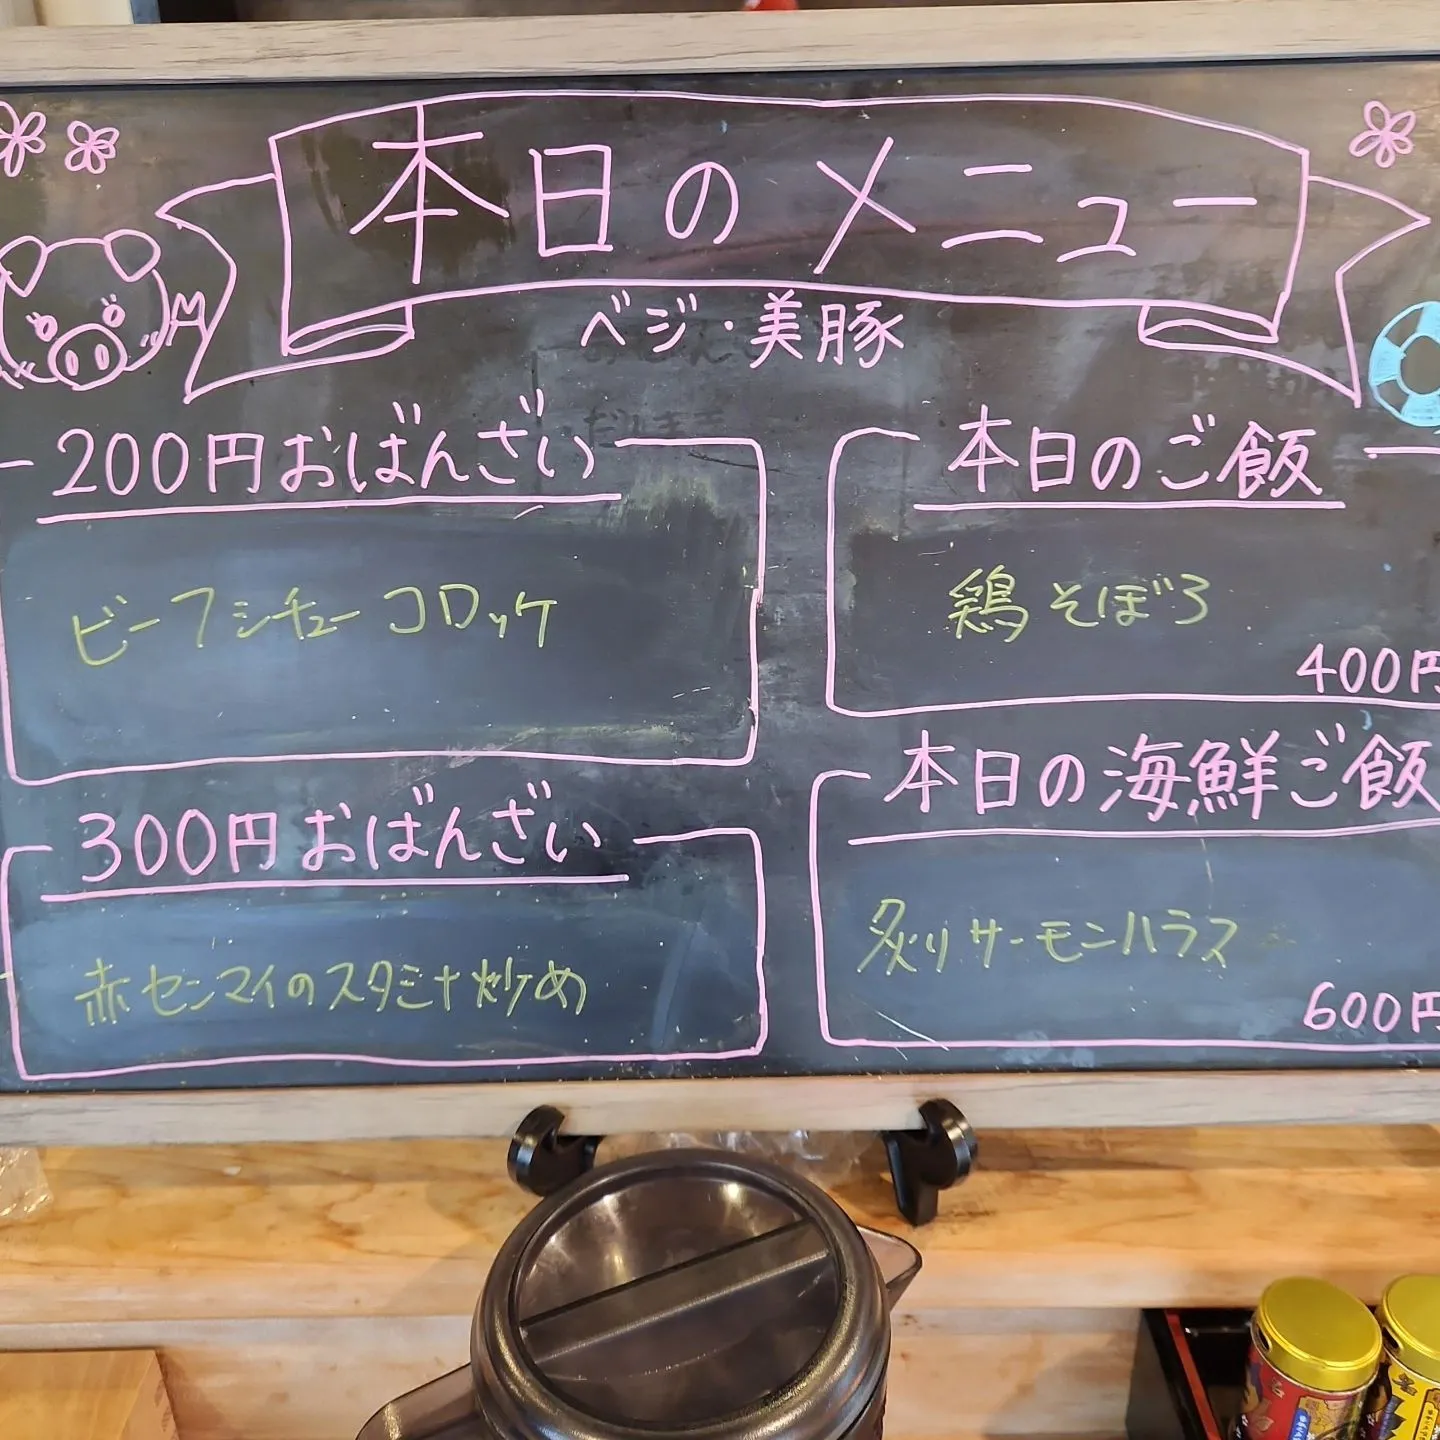 本日のメニュー
ベジ・美豚
200円おばんざい
ビーフシチューコロッケ
300円おばんざい
赤センマイのスタミナ炒め
本日のご飯
鶏そぼろ
400円
本日の海鮮ご飯
炙りサーモンハラス
600円